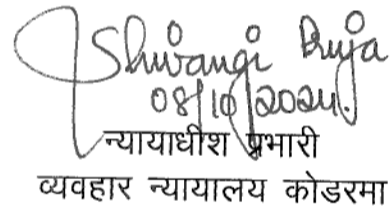 Shivangi Ruja
08/10/2024.
न्यायाधीश प्रभारी
व्यवहार न्यायालय कोडरमा